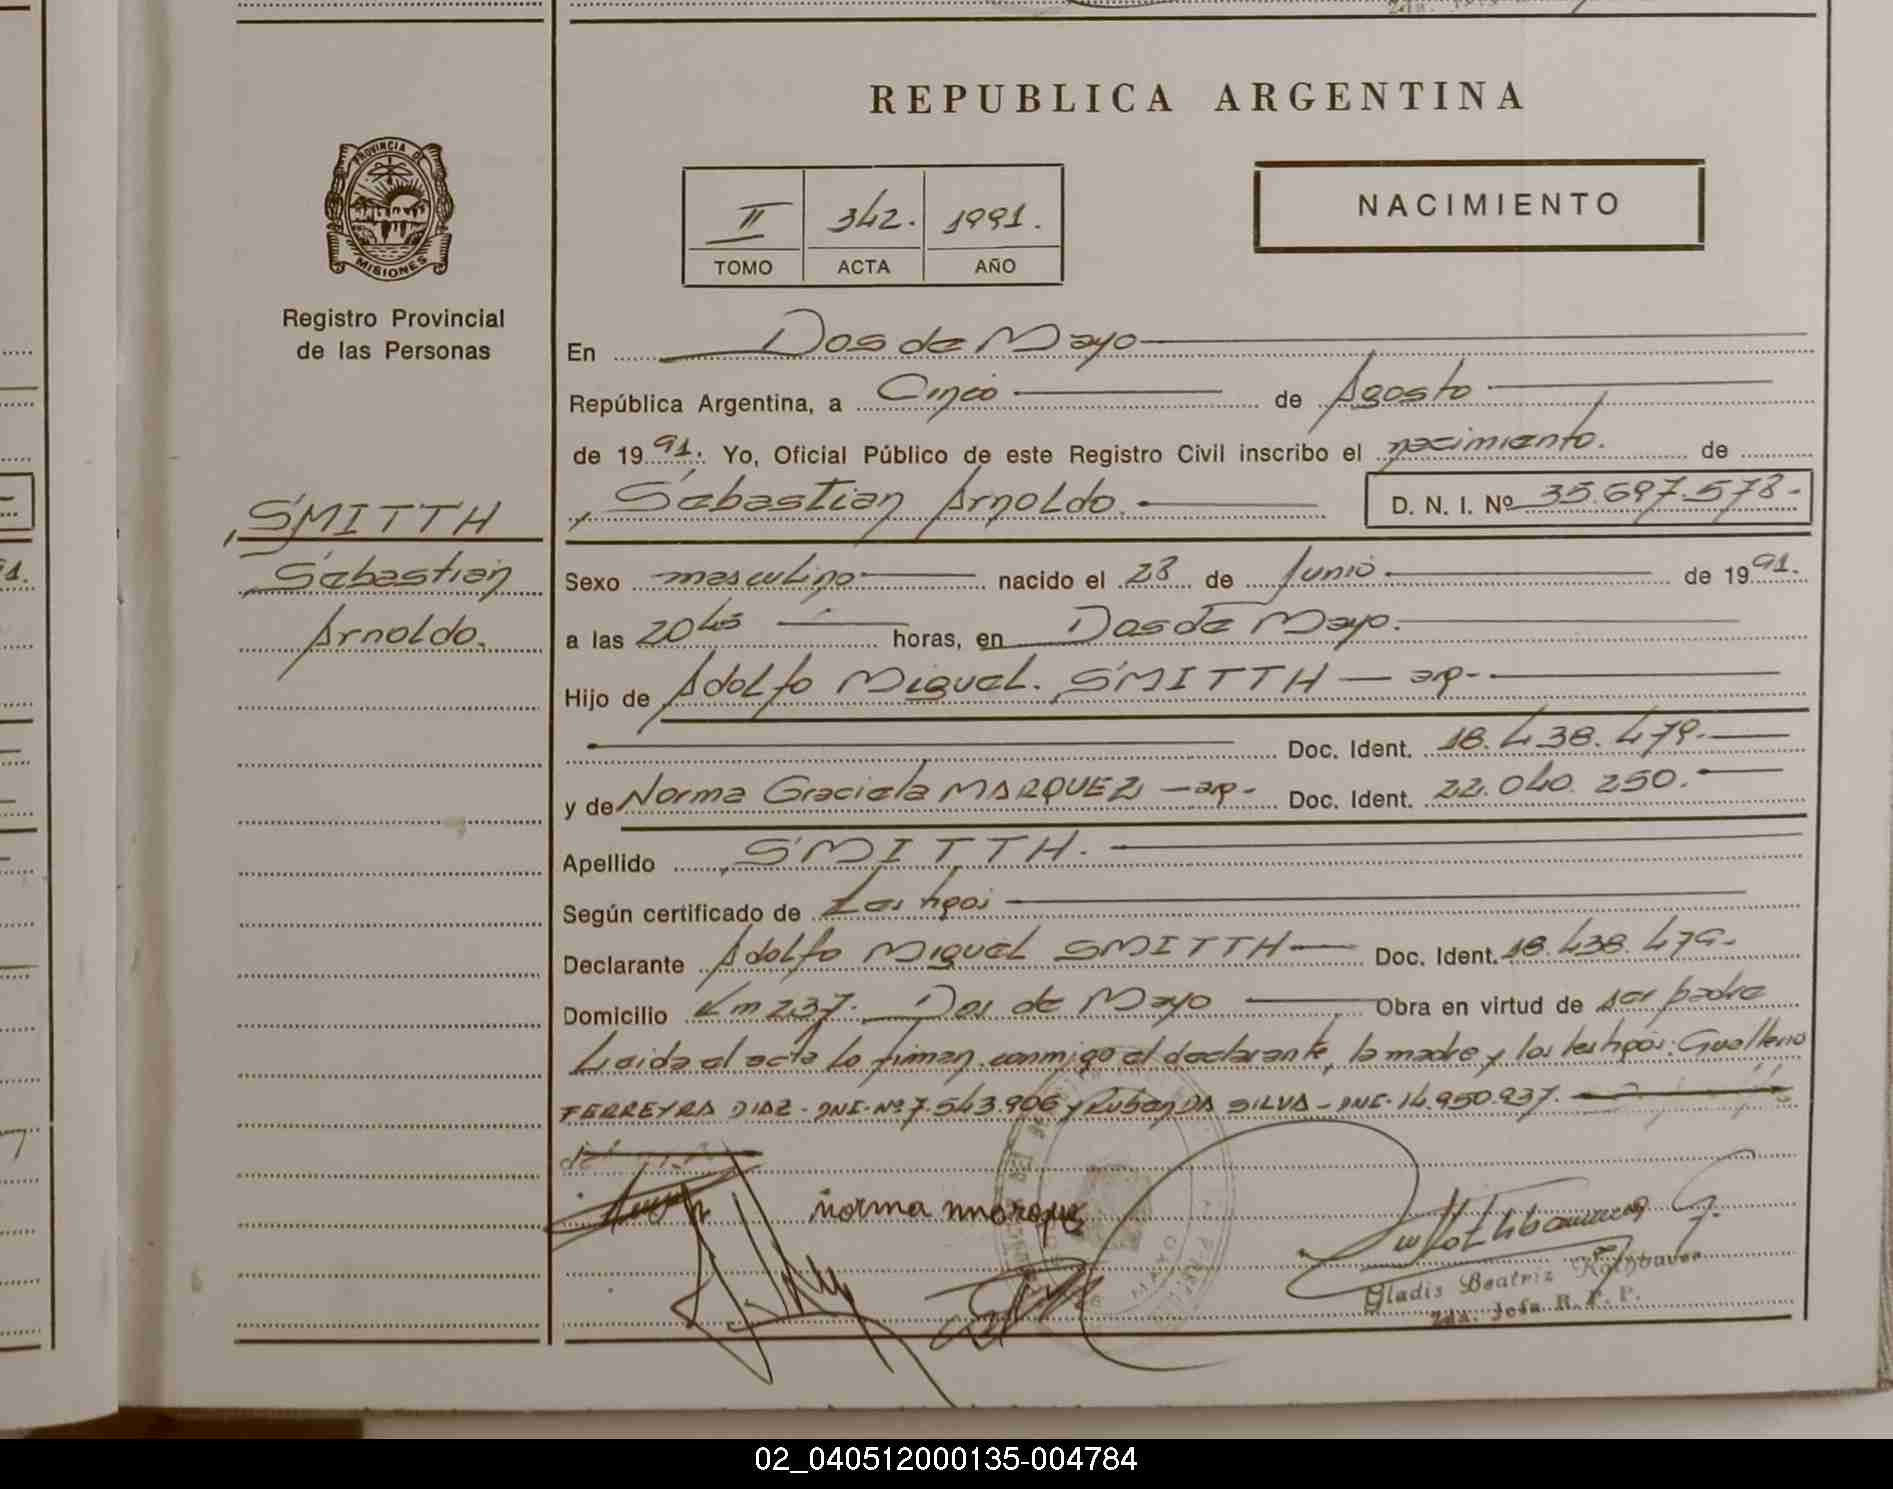 REPUBLICA ARGENTINA
PROVINCIA DE
MISIONES
Registro Provincial
de las Personas
II 342. 1991.
TOMO ACTA AÑO
NACIMIENTO
En Dos de Mayo
República Argentina, a Cinco de Agosto
de 1991. Yo, Oficial Público de este Registro Civil inscribo el nacimiento. de
Sebastian Arnoldo. D. N. I. Nº 35.697.578-
SMITTH
Sebastian
Arnoldo.
Sexo masculino nacido el 28 de Junio de 1991.
a las 2045 horas, en Dos de Mayo.
Hijo de Adolfo Miguel. SMITTH — ar-
Doc. Ident. 18.438.479.
y de Norma Graciela MARQUEZ — ar- Doc. Ident. 22.040.250.
Apellido SMITTH.
Según certificado de Testigos
Declarante Adolfo Miguel SMITTH Doc. Ident. 18.438.479-
Domicilio Km 237. Dos de Mayo Obra en virtud de ser padre
Leida el acta lo firman conmigo el declarante, la madre y los testigos: Gualterio
FERREYRA DIAZ - DNI-Nº 7.543.906 y Ruben DA SILVA - DNI-14.950.937.
norma marque
Gladis Beatriz Rothbauer
2da. Jefa R. P. P.
02_040512000135-004784